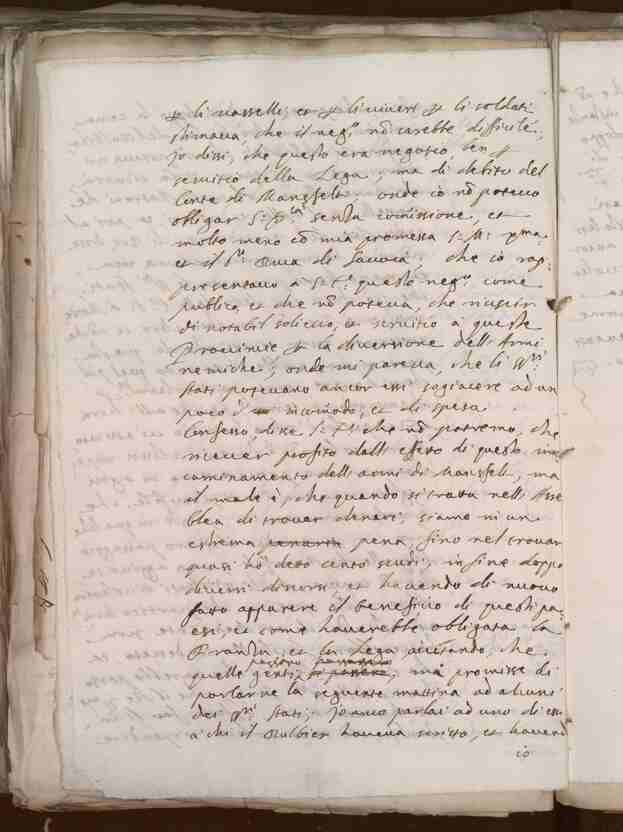 p li vasselli, et p li viveri p li soldati
stimava, che il neg.º nõ sarebbe difficile,
Io dissi, che questo era negotio, ben p
servitio della Lega, ma di debito del
Conte di Mansfelt onde io nõ potevo
obligar S. senza comissione, et
molto meno cõ mia promessa S. M.
et il S.r Duca di Savoia; che io rap
presentavo à S. E. questo neg.º come
publico, et che nõ poteva, che riuscir
di notabil sollievo, et servitio à queste
Provincie p la diversione dell'Armi
nemiche; onde mi pareva, che li SS.ri
stati potevano ancor essi sogiacere ad un
poco d' incomodo, et di spesa
Confesso, disse S. E. che nõ potremo, che
ricever profitto dall'effetto di questo
caminamento dell'armi di Mansfelt, ma
il male è, che quando si tratta nell'Asse
blea di trovar denari, siamo in un
estrema penaria pena, sino nel trovar
quasi hò detto cento scudi; in fine doppo
diversi discorsi, et havendo di nuovo
fatto apparere il beneficio di questi pa
esi, et come haverebbe obligata la
Francia, et la Lega aiutando, che
quelle genti, mà promisse di
parlarne la seguente mattina ad alcuni
dei SS.ri stati; Io anco parlai ad uno di essi
à chi il haveva scritto, et havend
io